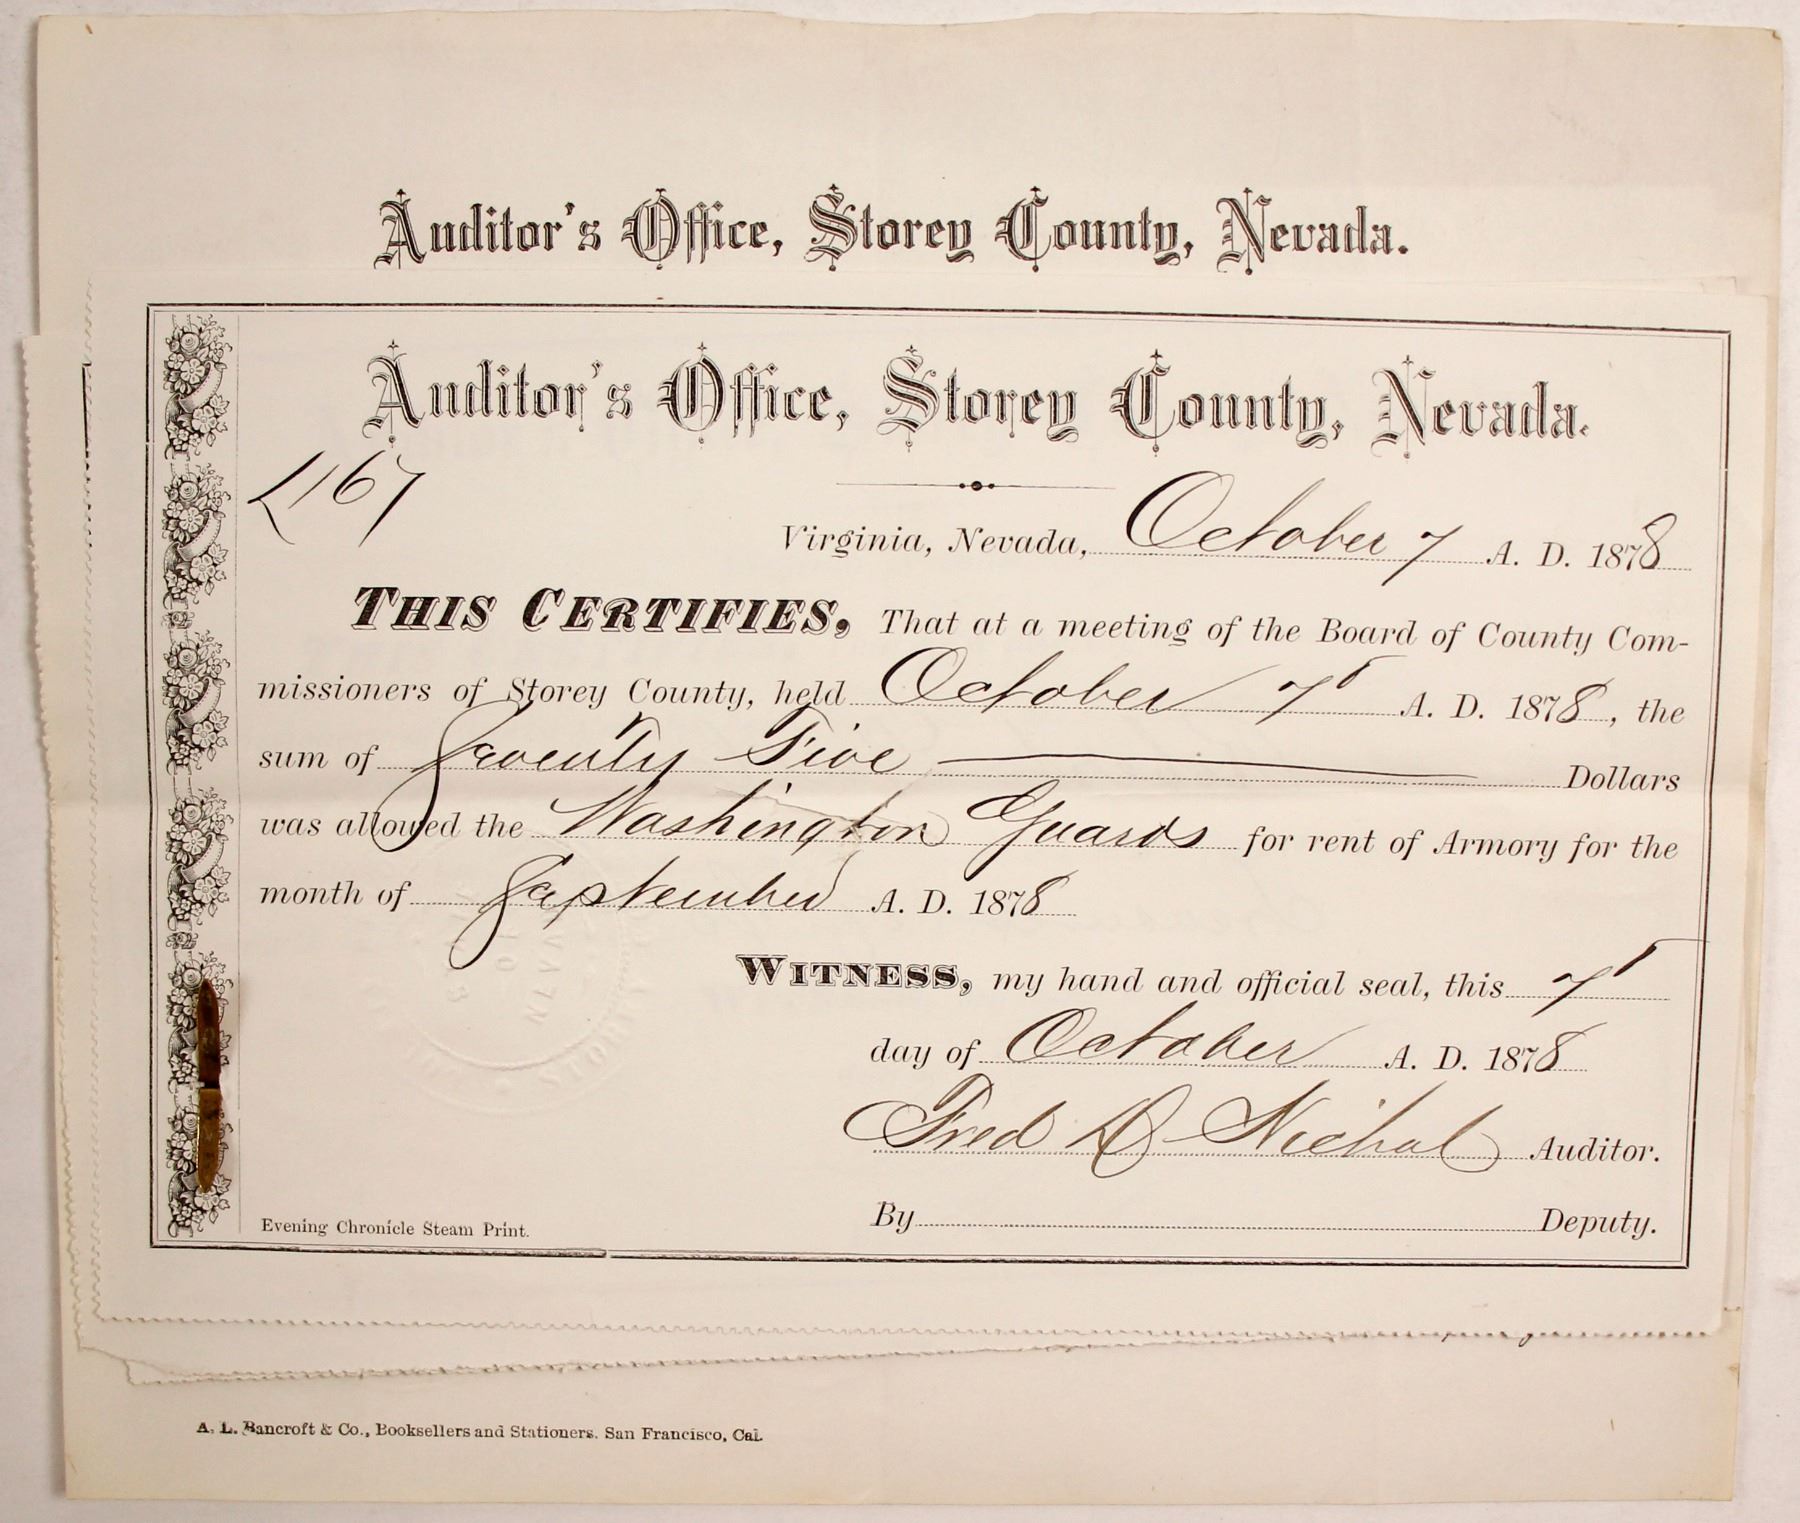 Auditor's Office, Storey County, Nevada.
Auditor's Office, Storey County, Nevada.
167
Virginia, Nevada, October 7 A. D. 1878
THIS CERTIFIES, That at a meeting of the Board of County Com-
missioners of Storey County, held October 7 A. D. 1878, the
sum of Seventy Five Dollars
was allowed the Washington Guards for rent of Armory for the
month of September A. D. 1878
WITNESS, my hand and official seal, this 7
day of October A. D. 1878
Fred D Nichol Auditor.
By Deputy.
Evening Chronicle Steam Print.
A. L. Bancroft & Co., Booksellers and Stationers. San Francisco, Cal.